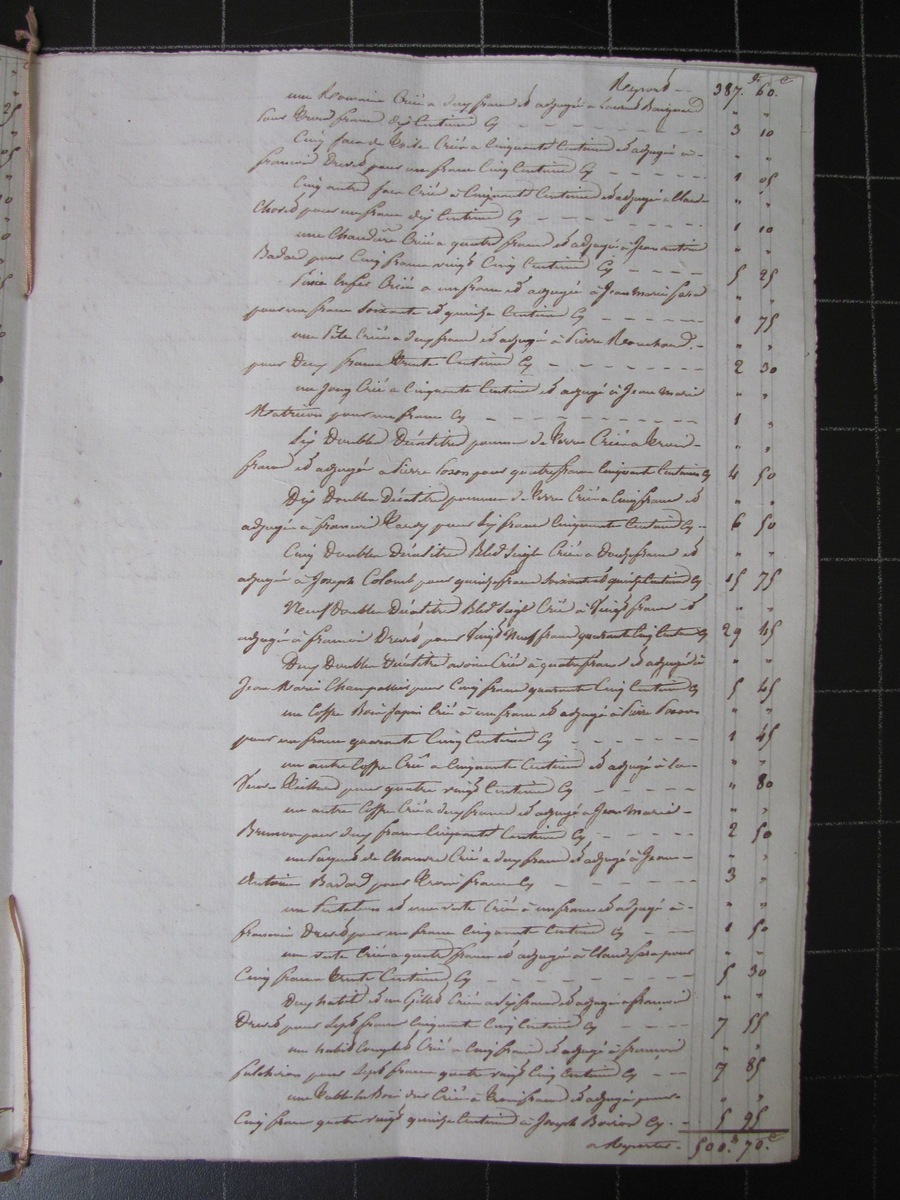 Report -- 387. fr 60. c
une Romaine Criée a deux francs et adjugée a " "
pour trois francs dix Centimes Cy - - - - 3 10
Cinq sacs de toile Criés a Cinquante Centimes et adjugés a - " "
françois Drevet pour un franc Cinq Centimes Cy - - - - 1 05
Cinq autres sacs Criés a Cinquante Centimes et adjugés a Clau- " "
pour un franc dix Centimes Cy - - - - 1 10
une Chaudière Criée a quatre francs et adjugée à Jean antoine " "
Badard pour Cinq francs vingt Cinq Centimes Cy - - - - 5 25
Criée a un franc et adjugée à Jean Marie " "
pour un franc soixante et quinze Centimes Cy - - - - 1 75
une Criée a deux francs et adjugée à Pierre - " "
pour Deux francs trente Centimes Cy - - - - 2 30
un Joug Crié a Cinquante Centimes et adjugé à Jean Marie " "
pour un franc Cy - - - - 1 "
Six Doubles Décalitres pommes de terre Criés a trois - " "
francs et adjugés a Pierre pour quatre francs Cinquante Centimes Cy 4 50
Dix Doubles Décalitres pommes de terre Criés a Cinq francs et " "
adjugés à francois pour Six francs Cinquante Centimes Cy - 6 50
Cinq Doubles Décalitres Bled Seigle Criés a Douze francs et " "
adjugés à Joseph Colomb pour quinze francs soixante et quinze Centimes Cy 15 75
Neuf Doubles Décalitres Bled Seigle Criés à Vingt francs et " "
adjugés à francois Drevet pour Vingt Neuf francs quarante Cinq Centimes Cy 29 45
Deux Doubles Décalitres avoine Criés à quatre francs et adjugés à " "
Jean Marie pour Cinq francs quarante Cinq Centimes Cy 5 45
un Coffre Bois sapin Crié à un franc et adjugé à Pierre " "
pour un franc quarante Cinq Centimes Cy - - - - 1 45
un autre Coffre Crié a Cinquante Centimes et adjugé à la - " "
Veuve pour quatre vingt Centimes Cy - - - - " 80
un autre Coffre Crié a deux francs et adjugé a Jean Marie - " "
pour deux francs Cinquante Centimes Cy - - - - 2 50
un de Chanvre Crié a deux francs et adjugé à Jean - " "
Antoine Badard pour trois francs Cy - - - - 3 "
un Pantalon et une veste Criés à un franc et adjugés à - " "
francois Drevet pour un franc Cinquante Centimes Cy - - - 1 50
une veste Criée a quatre francs et adjugée à Claude pour " "
Cinq francs trente Centimes Cy - - - - 5 30
Deux habits et un Gillet Criés a Six francs et adjugés a francois " "
Drevet pour Sept francs Cinquante Cinq Centimes Cy - - - 7 55
un habit Complet Crié a Cinq francs et adjugé à francois " "
pour Sept francs quatre vingt Cinq Centimes Cy - - 7 85
une Table Bois dur Criée à trois francs et adjugée pour - " "
Cinq francs quatre vingt quinze Centimes à Joseph Cy - - 5 95
a Reporter - 500. fr 70. c